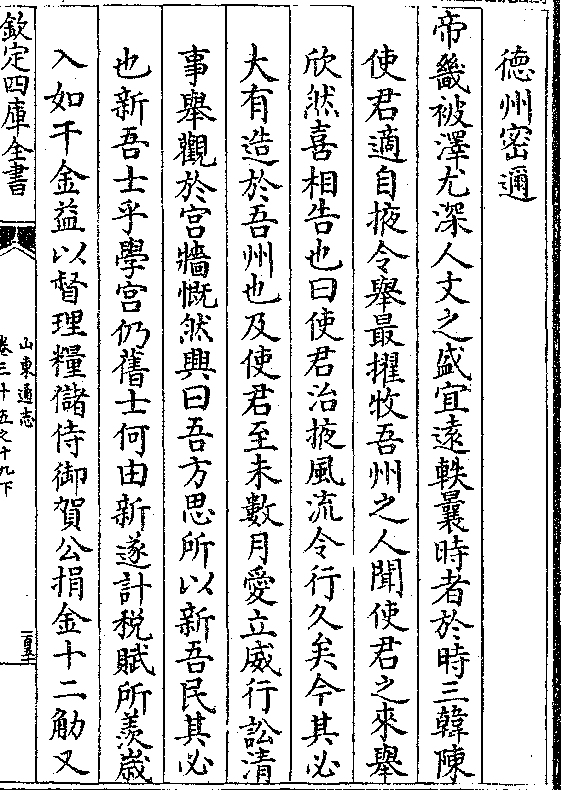 德州密邇
帝畿被澤尤深人文之盛宜遠軼曩時者於時三韓陳
使君適自掖令舉最擢牧吾州之人聞使君之來舉
欣然喜相告也曰使君治掖風流令行久矣今其必
大有造於吾州也及使君至未數月愛立威行訟清
事舉觀於宫牆慨然興曰吾方思所以新吾民其必
也新吾士乎學宫仍舊士何由新遂計税賦所羨歲
入如干金益以督理糧儲侍御賀公捐金十二觔又
欽定四庫全書
山東通志
卷三十五之十九下